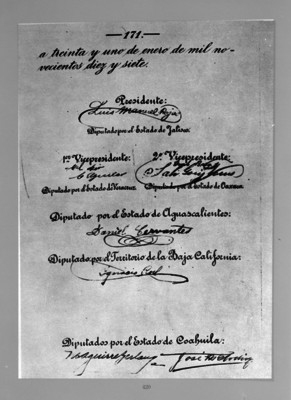 —171.—
a treinta y uno de enero de mil no-
vecientos diez y siete.
Presidente:
Luis Manuel Rojas
Diputado por el Estado de Jalisco.
1er Vicepresidente: 2o Vicepresidente:
Diputado por el Estado de Veracruz. Diputado por el Estado de Oaxaca.
Diputado por el Estado de Aguascalientes:
Daniel Cervantes
Diputado por el Territorio de la Baja California:
Ignacio Roel
Diputados por el Estado de Coahuila: